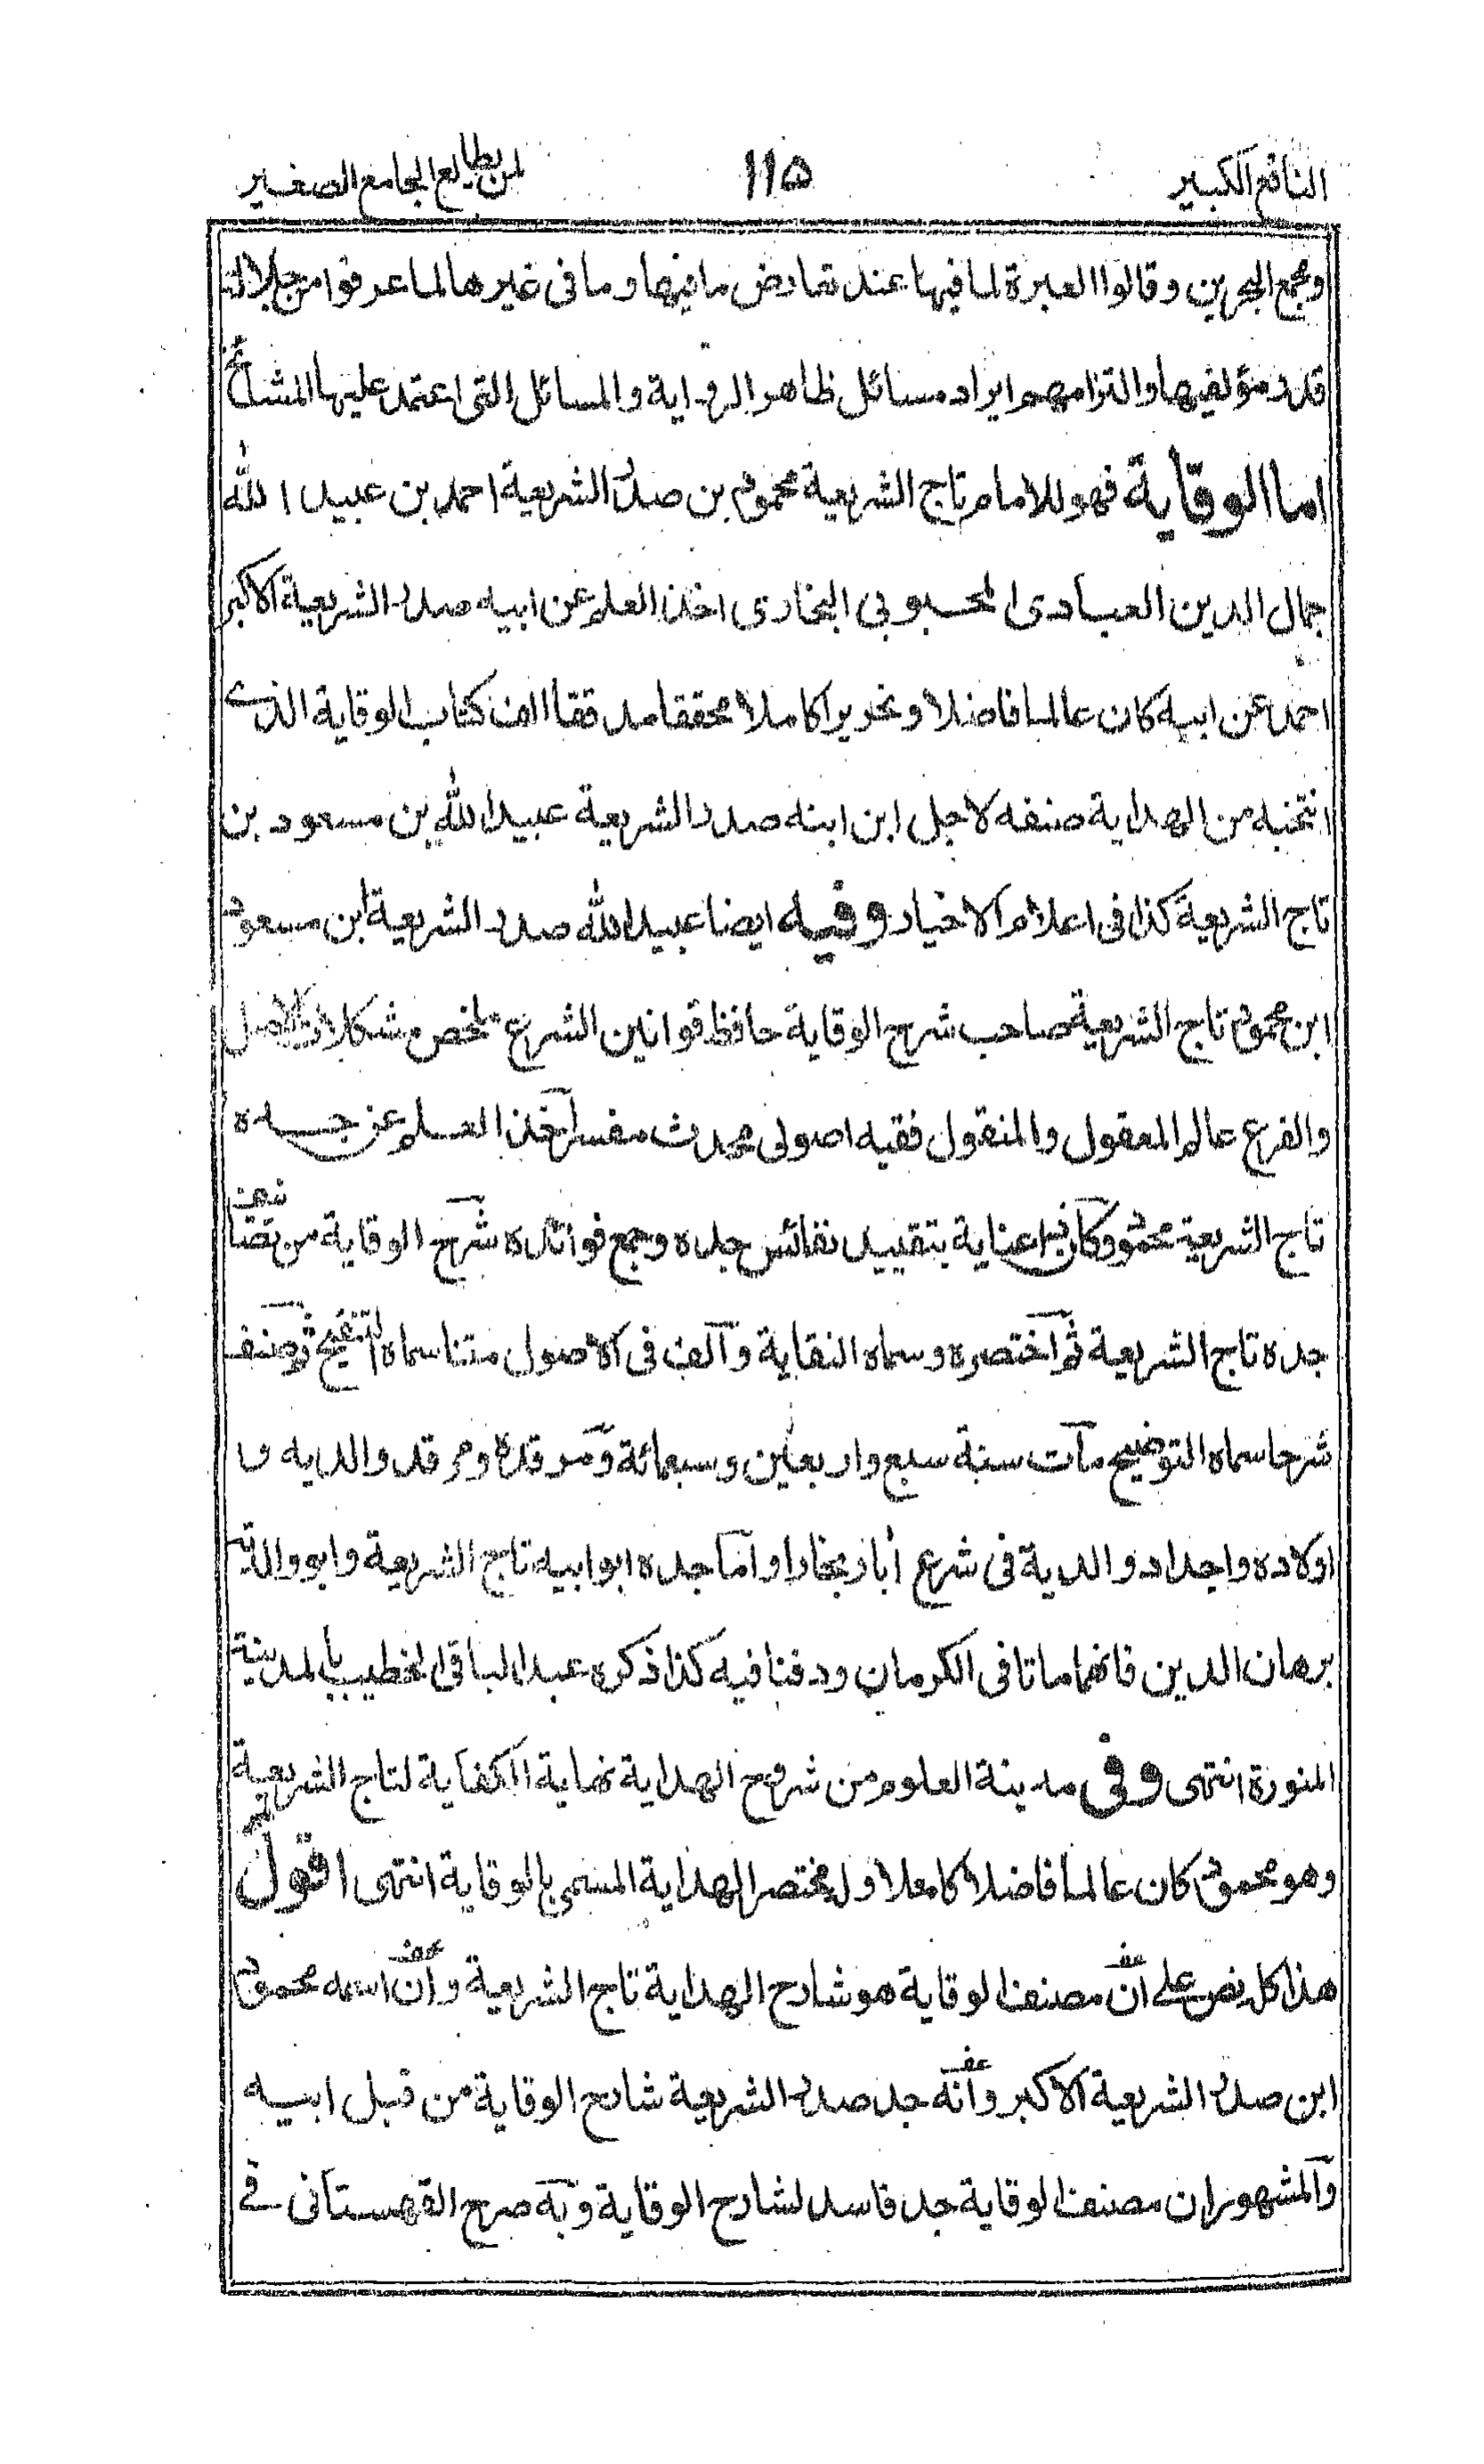 النافع الكبير ١١٥ لمن يطالع الجامع الصغير
ومجمع البحرين وقالوا العبرة لما فيها عند تعارض ما فيها وما فى غيرها لما عرفوا من جلالة
قدر مؤلفيها والتزامهم ايراد مسائل ظاهر الرواية والمسائل التى اعتمد عليها المشائخ
اما الوقاية فهو للامام تاج الشريعة محمود بن صدر الشريعة احمد بن عبيد الله
جمال الدين العبادى المحبوبى البخارى اخذ العلم عن ابيه صدر الشريعة الاكبر
احمد عن ابيه كان عالما فاضلا ونحريرا كاملا محققا مدققا الف كتاب الوقاية الذى
انتخبه من الهداية صنفه لاجل ابن ابنه صدر الشريعة عبيد الله بن مسعود بن
تاج الشريعة كذا فى اعلام الاخيار وفيه ايضا عبيد الله صدر الشريعة ابن مسعود
ابن محمود تاج الشريعة صاحب شرح الوقاية حافظ قوانين الشرع ملخص مشكلات الاصل
والفرع عالم المعقول والمنقول فقيه اصولى محدث مفسر اخذ العلم عن جده
تاج الشريعة محمود وكان ذا عناية بتقييد نفائس جده وجمع فوائده شرح الوقاية من تصانيف
جده تاج الشريعة ثم اختصره وسماه النقاية وآلف فى الاصول متنا سماه التنقيح ثم صنف
شرحا سماه التوضيح مات سنة سبع واربعين وسبعمائة ومرقده ومرقد والديه و
اولاده واجداد والدية فى شرع أباد بخارا واما جده ابو ابيه تاج الشريعة وابو والدته
برهان الدين فانهما ماتا فى الكرمان ودفنا فيه كذا ذكره عبد الباقى الخطيب بالمدينة
المنورة انتهى وفى مدينة العلوم من شروح الهداية نهاية الكفاية لتاج الشريعة
وهو محمود كان عالما فاضلا كاملا وله مختصر الهداية المسمى بالوقاية انتهى اقول
هذا كل نص على ان مصنف الوقاية هو شارح الهداية تاج الشريعة وان اسمه محمود
ابن صدر الشريعة الاكبر وانه جد صدر الشريعة شارح الوقاية من قبل ابيه
والمشهور ان مصنف الوقاية جد فاسد لشارح الوقاية وبه صرح القهستانى فى